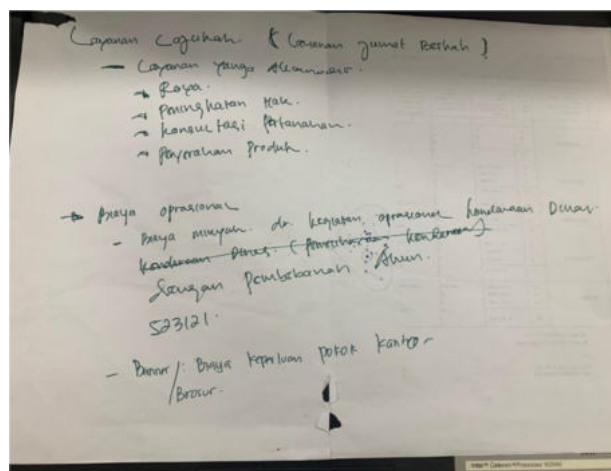 Layanan Lajubkah. ( Layanan Jumat Berkah )
— Layanan yang Akomodasi.
→ Roya.
→ Peningkatan Hak.
→ Konsultasi Pertanahan.
→ Penyerahan Produk.
→ Biaya oprasional
- Biaya minyak. dr kegiatan oprasional kendaraan Dinas.
kendaraan Dinas. (pemeliharaan kendaraan)
dengan pembebanan Akun.
523121.
- Banner/: Biaya keperluan pokok kantor
Brosur.